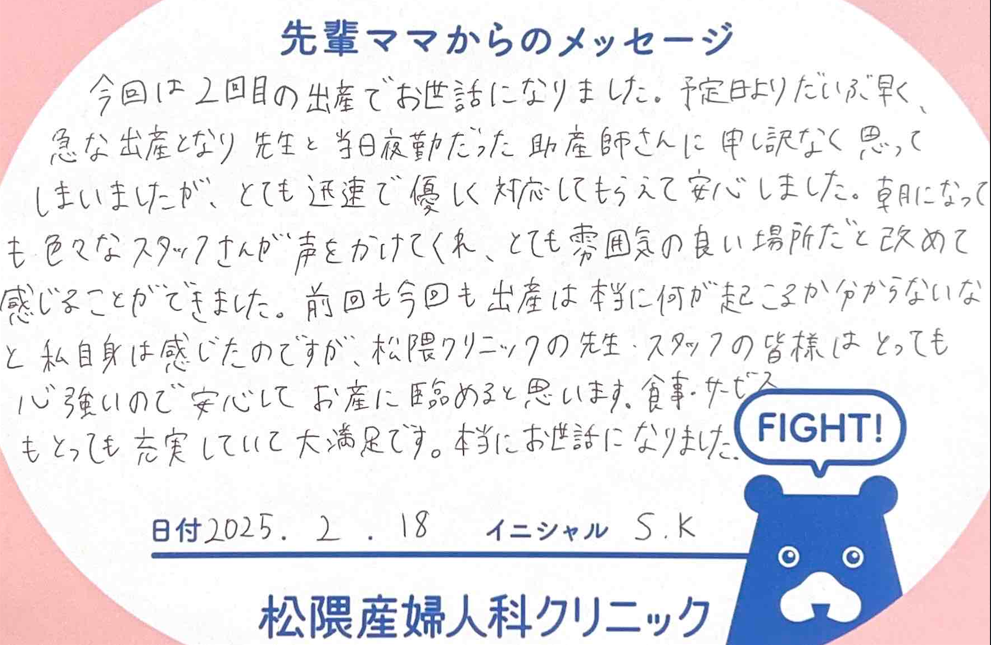 先輩ママからのメッセージ
今回は2回目の出産でお世話になりました。予定日よりだいぶ早く、
急な出産となり先生と当日夜勤だった助産師さんに申し訳なく思って
しまいましたが、とても迅速で優しく対応してもらえて安心しました。朝になって
も色々なスタッフさんが声をかけてくれ、とても雰囲気の良い場所だと改めて
感じることができました。前回も今回も出産は本当に何が起こるか分からないな
と私自身は感じたのですが、松隈クリニックの先生・スタッフの皆様はとっても
心強いので安心してお産に臨めると思います。食事・サービス
もとっても充実していて大満足です。本当にお世話になりました。
FIGHT!
日付2025.2.18 イニシャル S.K
松隈産婦人科クリニック